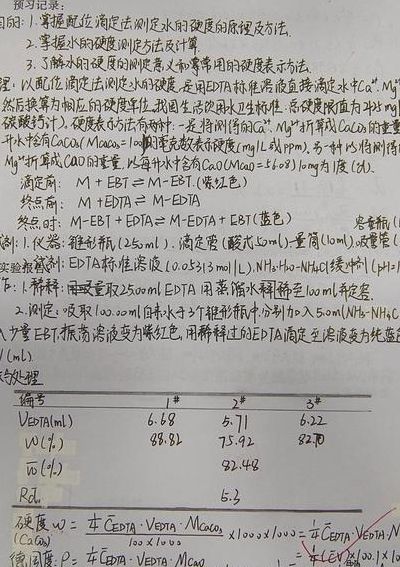 预习记录:
目的: 1. 掌握配位滴定法测定水的硬度的原理及方法.
2. 掌握水的硬度测定方法及计算.
3. 了解水的硬度的测定意义和常用的硬度表示方法.
理: 以配位滴定法测定水的硬度,是用EDTA标准溶液直接滴定水中Ca²⁺、Mg²⁺
然后换算为相应的硬度单位,我国生活饮用水卫生标准:总硬度限值为425mg
碳酸钙计). 硬度表示方法有两种:一是将测得的Ca²⁺、Mg²⁺折算成CaCO₃的重量
升水中含有CaCO₃(Mcaco₃=100)的毫克数表示硬度(mg/L或ppm). 另一种以将测得
Mg²⁺折算成CaO的重量,以每升水中含有CaO(Mcao=56.08)10mg为1度(d).
滴定前: M+EBT⇌M-EBT.(紫红色)
终点前: M+EDTA⇌M-EDTA
终点时: M-EBT+EDTA⇌M-EDTA+EBT(蓝色)
容量瓶(1
试剂: 1.仪器: 锥形瓶(250ml). 滴定管(酸式50ml)-量筒(10ml).吸量管(
实验报告 试剂: EDTA标准溶液(0.05313mol/L).NH₃·H₂O-NH₄Cl缓冲剂(pH=1
1. 稀释: 量取25.00ml EDTA 用蒸馏水稀释至100ml并定容.
2. 测定: 吸取100.00ml自来水于3个锥形瓶中,分别加入5.0ml(NH₃-NH₄C
入少量EBT,振荡溶液变为紫红色,用稀释过的EDTA滴定至溶液变为纯蓝色
V(ml)
与处理
编号 1# 2# 3#
VEDTA(ml) 6.68 5.71 6.22
W(%) 88.82 75.92 82.70
W̄(%) 82.48
Rd̄. 5.3
硬度 W = ¼ C̄EDTA·VEDTA·Mcaco₃ / 100×1000 ×1000×1000 = ¼ C̄EDTA·VEDTA·M
(CaCO₃)
德国度: ρ = ¼ C̄EDTA·VEDTA·Mcao